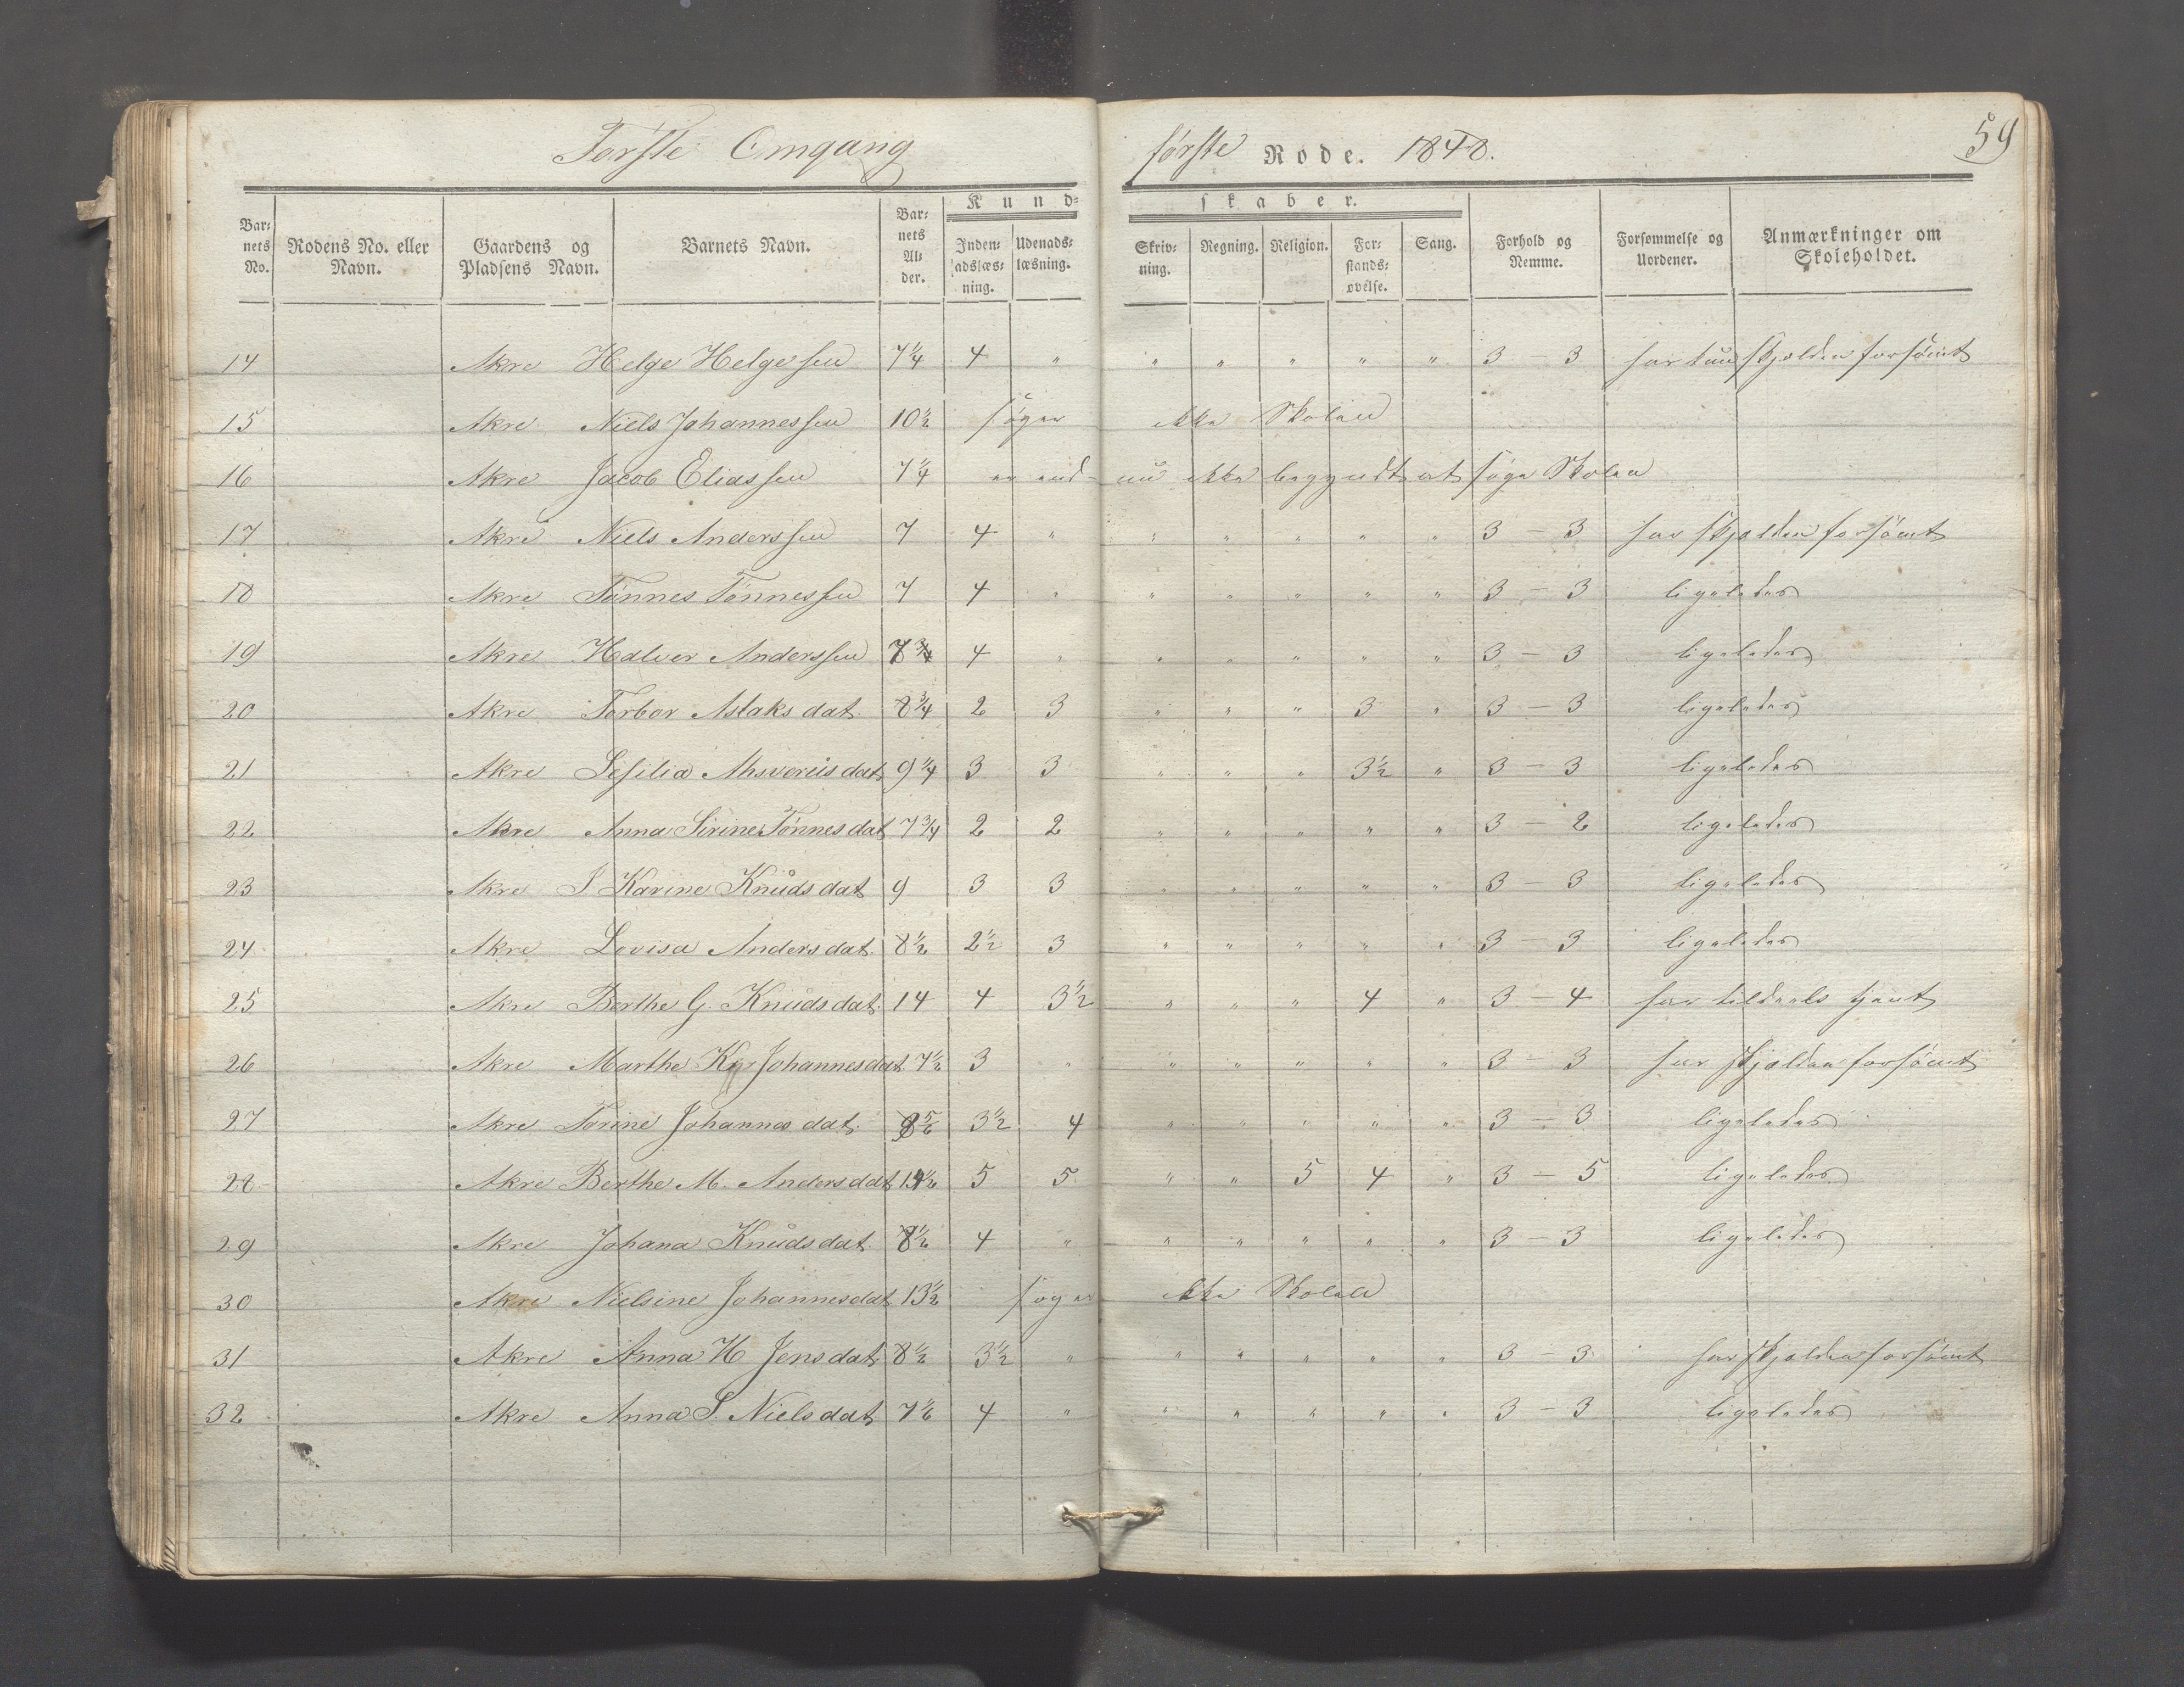 Første Omgang første Rode. 1848. 59
Kundskaber.
Barnets No. Rodens No. eller Navn. Gaardens og Pladsens Navn. Barnets Navn. Barnets Alder. Indenadslæsning. Udenadslæsning. Skrivning. Regning. Religion. Forstandsøvelse. Sang. Forhold og Nemme. Forsømmelse og Uordener. Anmærkninger om Skoleholdet.
14 Akre Helge Helgesen 7 1/4 4 " " " " " " 3 - 3 har kun skjelden forsömt
15 Akre Niels Johannessen 10 1/2 søger ikke Skolen
16 Akre Jacob Eliassen 7 1/4 er endnu ikke begyndt at søge Skolen
17 Akre Niels Anderssen 7 4 " " " " " " 3 - 3 har skjelden forsömt
18 Akre Tönnes Tönnessen 7 4 " " " " " " 3 - 3 ligeledes
19 Akre Halver Anderssen 7 3/4 4 " " " " " " 3 - 3 ligeledes
20 Akre Torbor Aslaksdat. 8 3/4 2 3 " " " 3 " 3 - 3 ligeledes
21 Akre Sesilia Ahsverüsdat. 9 1/4 3 3 " " " 3 1/2 " 3 - 3 ligeledes
22 Akre Anna Sirine Tönnesdat 7 3/4 2 2 " " " " " 3 - 2 ligeledes
23 Akre S Karine Knüdsdat 9 3 3 " " " " " 3 - 3 ligeledes
24 Akre Lovisa Andersdat. 8 1/2 2 1/2 3 " " " " " 3 - 3 ligeledes
25 Akre Berthe G. Knüdsdat. 14 4 3 1/2 " " " 4 " 3 - 4 har tildeels tjent
26 Akre Marthe K Johannesdat 7 1/2 3 " " " " " " 3 - 3 har skjelden forsömt
27 Akre Torine Johannesdat. 5/6 3 1/2 4 " " " " " 3 - 3 ligeledes
28 Akre Berthe M. Andersdat 14 1/2 5 5 " " 5 4 " 3 - 5 ligeledes
29 Akre Johana Knüdsdat. 8 1/2 4 " " " " " " 3 - 3 ligeledes
30 Akre Nielsine Johannesdat 13 1/2 søger ikke Skolen
31 Akre Anna H Jensdat. 8 1/2 3 1/2 " " " " " " 3 - 3 har skjelden forsömt
32 Akre Anna S. Nielsdat 7 1/6 4 " " " " " " 3 - 3 ligeledes